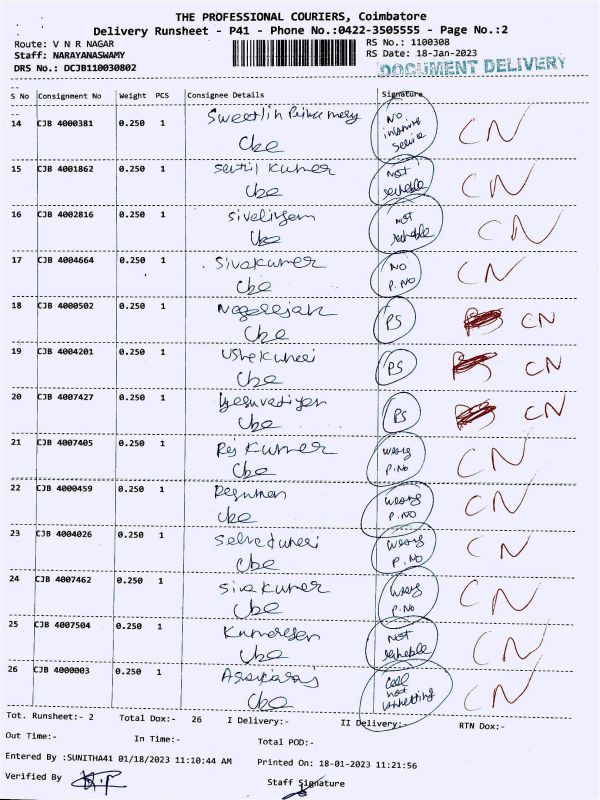 THE PROFESSIONAL COURIERS, Coimbatore
Delivery Runsheet - P41 - Phone No.:0422-3505555 - Page No.:2
Route: V N R NAGAR RS No.: 1100308
Staff: NARAYANASWAMY RS Date: 18-Jan-2023
DRS No.: DCJB110030802 DOCUMENT DELIVERY
S No Consignment No Weight PCS Consignee Details Signature
14 CJB 4000381 0.250 1 Sweetlin No service CN
Cbe
15 CJB 1001862 0.250 1 Kumer Not CN
Cbe
16 CJB 2002816 0.250 1 Not CN
Cbe
17 CJB 4004664 0.250 1 Sivakumer No P.NO CN
Cbe
18 CJB 4000502 0.250 1 PS CN
Cbe
19 CJB 4004201 0.250 1 PS CN
Cbe
20 CJB 4007427 0.250 1 PS CN
Cbe
21 CJB 4007405 0.250 1 Rej Kumer wrong P.NO CN
Cbe
22 CJB 4000459 0.250 1 wrong P.NO CN
Cbe
23 CJB 4004026 0.250 1 wrong P.NO CN
Cbe
24 CJB 4007462 0.250 1 Siva Kumer wrong P.NO CN
Cbe
25 CJB 4007504 0.250 1 Kumaresen Not CN
Cbe
26 CJB 4000003 0.250 1 Cell not CN
Cbe
Tot. Runsheet:- 2 Total Dox:- 26 I Delivery:- II Delivery:- RTN Dox:-
Out Time:- In Time:- Total POD:-
Entered By :SUNITHA41 01/18/2023 11:10:44 AM Printed On: 18-01-2023 11:21:56
Verified By Staff Signature